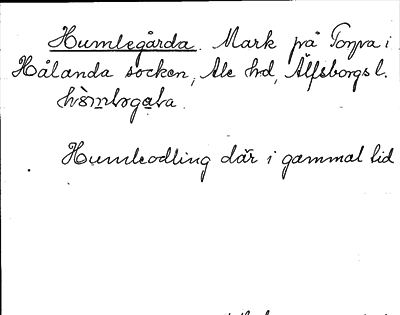 Humlegårda. Mark på Torpa i
Hålanda socken, Ale hd, Älfsborgs l.
Humleodling där i gammal tid